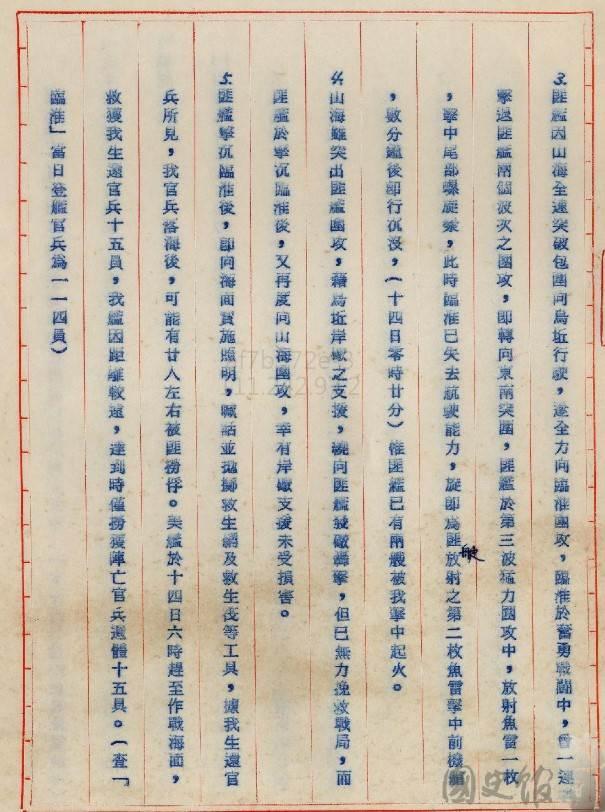 3.匪艦因山海全速突破包圍向烏坵行駛，遂全力向臨淮圍攻，臨淮於奮勇戰鬪中，曾一連
擊退匪艦兩個波次之圍攻，即轉向東南突圍，匪艦於第三波猛力圍攻中，放射魚雷一枚
，擊中尾部螺旋槳，此時臨淮已失去航駛能力，旋即為匪艇放射之第二枚魚雷擊中前機艙
，數分鐘後即行沉沒，（十四日零時廿分）惟匪艦已有兩艘被我擊中起火。
4.山海雖突出匪艦圍攻，藉烏坵岸礮之支援，繞向匪艦發礮轟擊，但已無力挽救戰局，而
匪艦於擊沉臨淮後，又再度向山海圍攻，幸有岸礮支援未受損害。
5.匪艦擊沉臨淮後，即向海面實施照明，喊話並拋擲救生網及救生筏等工具，據我生還官
兵所見，我官兵落海後，可能有廿人左右被匪撈俘。美艦於十四日六時趕至作戰海面，
救獲我生還官兵十五員，我艦因距離較遠，達到時僅撈獲陣亡官兵遺體十五具。（查「
臨淮」當日登艦官兵為一一四員）
國史館